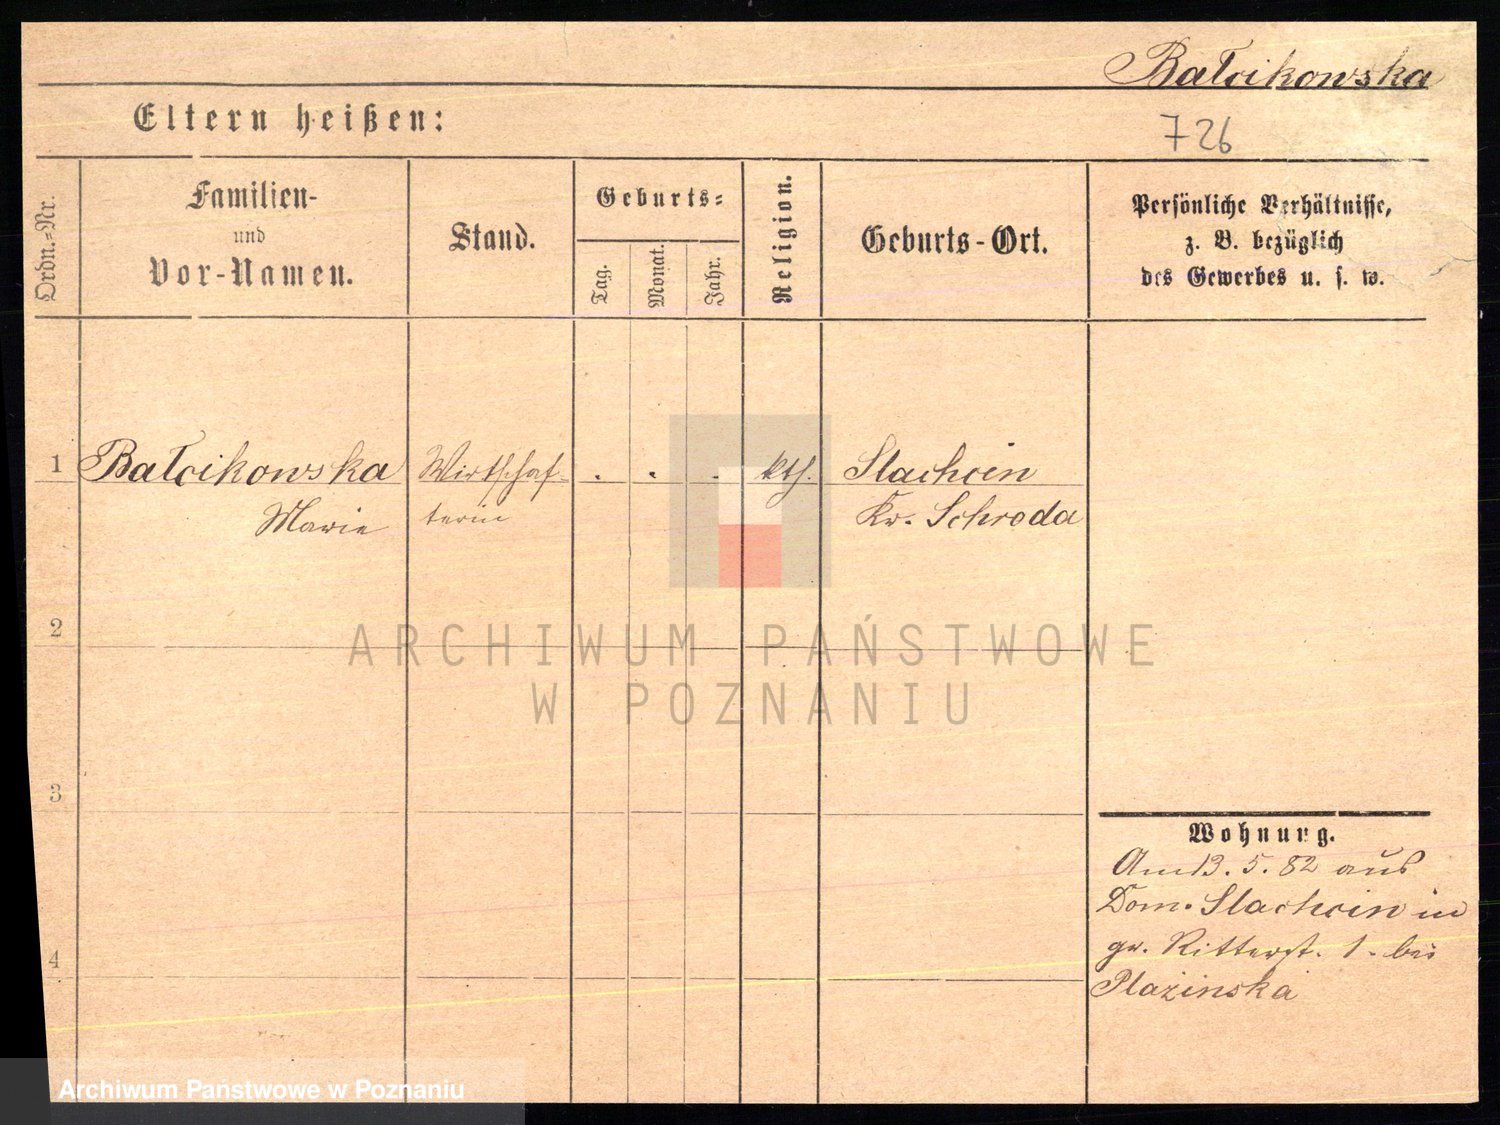 Bałcikowska
Eltern heißen:
726
Ordn.-Nr.
Familien-
und
Vor-Namen.
Stand.
Geburts-
Tag.
Monat.
Jahr.
Religion.
Geburts-Ort.
Persönliche Verhältnisse,
z. B. bezüglich
des Gewerbes u. s. w.
1
Bałcikowska
Marie
Wirthschaf-
terin
. . .
kth.
Slachcin
Kr. Schroda
2
3
4
Wohnung.
Am 13. 5. 82 aus
Dom. Slachcin in
gr. Ritterst. 1. bei
Plażinska
ARCHIWUM PAŃSTWOWE
W POZNANIU
Archiwum Państwowe w Poznaniu